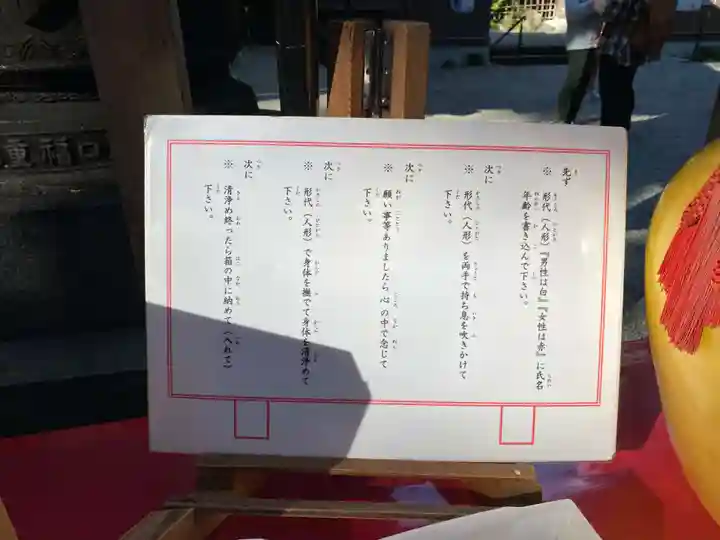 先ず
※ 形代（人形）『男性は白』『女性は赤』に氏名
年齢を書き込んで下さい。
次に
※ 形代（人形）を両手で持ち息を吹きかけて
下さい。
次に
※ 願い事等ありましたら心の中で念じて
下さい。
次に
※ 形代（人形）で身体を撫でて身体を清浄めて
下さい。
次に
※ 清浄め終ったら箱の中に納めて（へれて）
下さい。
重福口